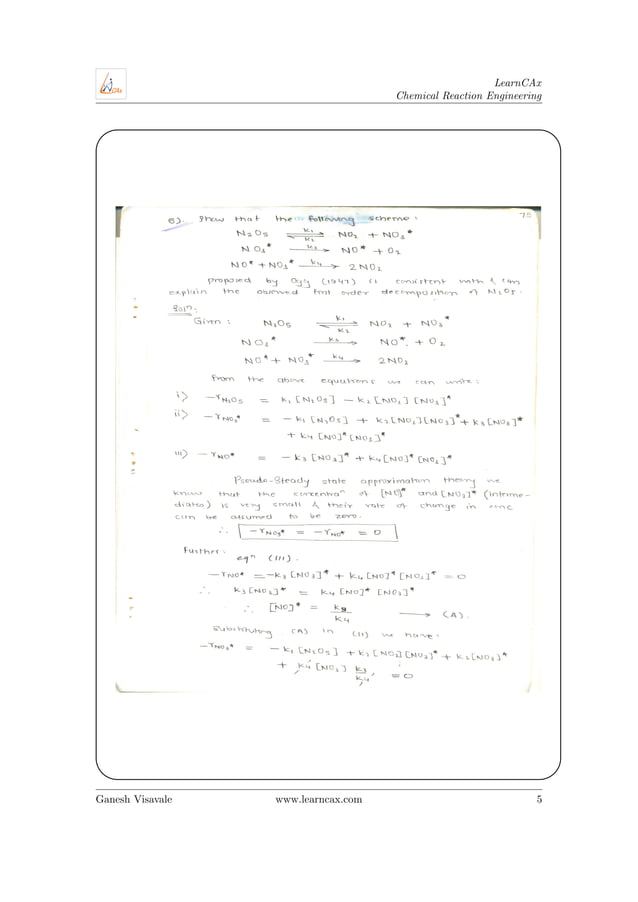 LearnCAx
Chemical Reaction Engineering
6). Show that the following scheme:
N2O5 ⇌ NO2 + NO3* (k1, k2)
NO3* —k3→ NO* + O2
NO* + NO3* —k4→ 2NO2
proposed by Ogg (1947) is consistent with & can
explain the observed first order decomposition of N2O5.
Soln:
Given : N2O5 ⇌ NO2 + NO3* (k1, k2)
NO3* —k3→ NO* + O2
NO* + NO3* —k4→ 2NO2
From the above equations we can write:
i) -rN2O5 = k1 [N2O5] - k2 [NO2] [NO3]*
ii) -rNO3* = - k1 [N2O5] + k2 [NO2] [NO3]* + k3 [NO3]*
+ k4 [NO]* [NO3]*
iii) -rNO* = - k3 [NO3]* + k4 [NO]* [NO3]*
Pseudo-Steady state approximation theory we
know that the concentran of [NO]* and [NO3]* (interme-
diates) is very small & their rate of change in conc
can be assumed to be zero.
∴ -rNO3* = -rNO* = 0
Further:
eqn (III).
-rNO* = -k3 [NO3]* + k4 [NO]* [NO3]* = 0
∴ k3 [NO3]* = k4 [NO]* [NO3]*
∴ [NO]* = k3/k4 → (A).
Substituting (A) in (II) we have:
-rNO3* = - k1 [N2O5] + k2 [NO2] [NO3]* + k3 [NO3]*
+ k4 [NO3] k3/k4 = 0
Ganesh Visavale www.learncax.com 5